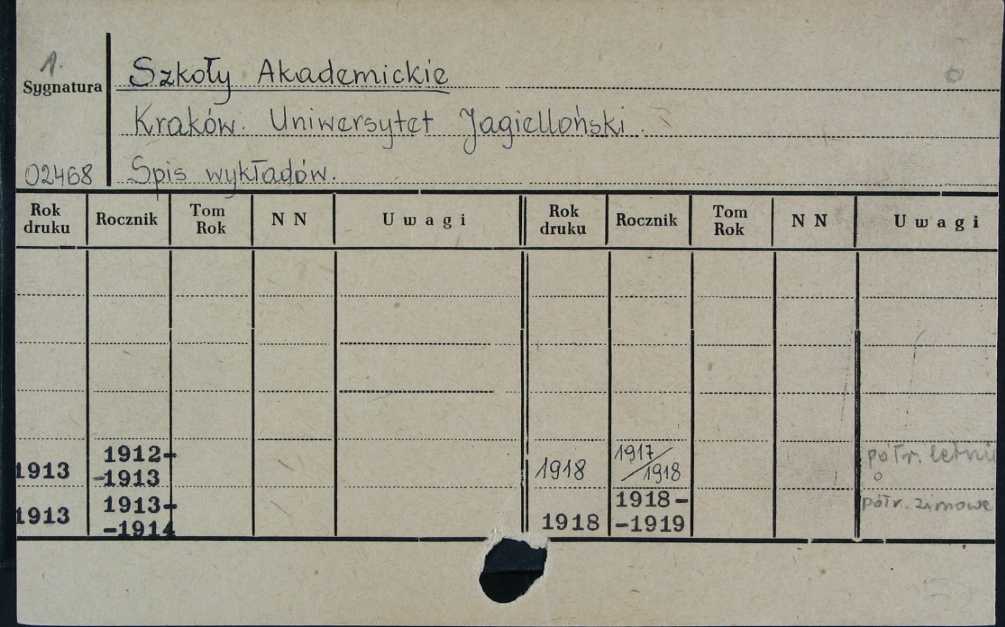 1.
Sygnatura
Szkoły Akademickie
Kraków. Uniwersytet Jagielloński.
02468 Spis wykładów.
Rok druku Rocznik Tom Rok N N Uwagi Rok druku Rocznik Tom Rok N N Uwagi
1913 1912-
-1913 1918 1917/1918 półr. letni
1913 1913-
-1914 1918 1918-
-1919 półr. zimowe